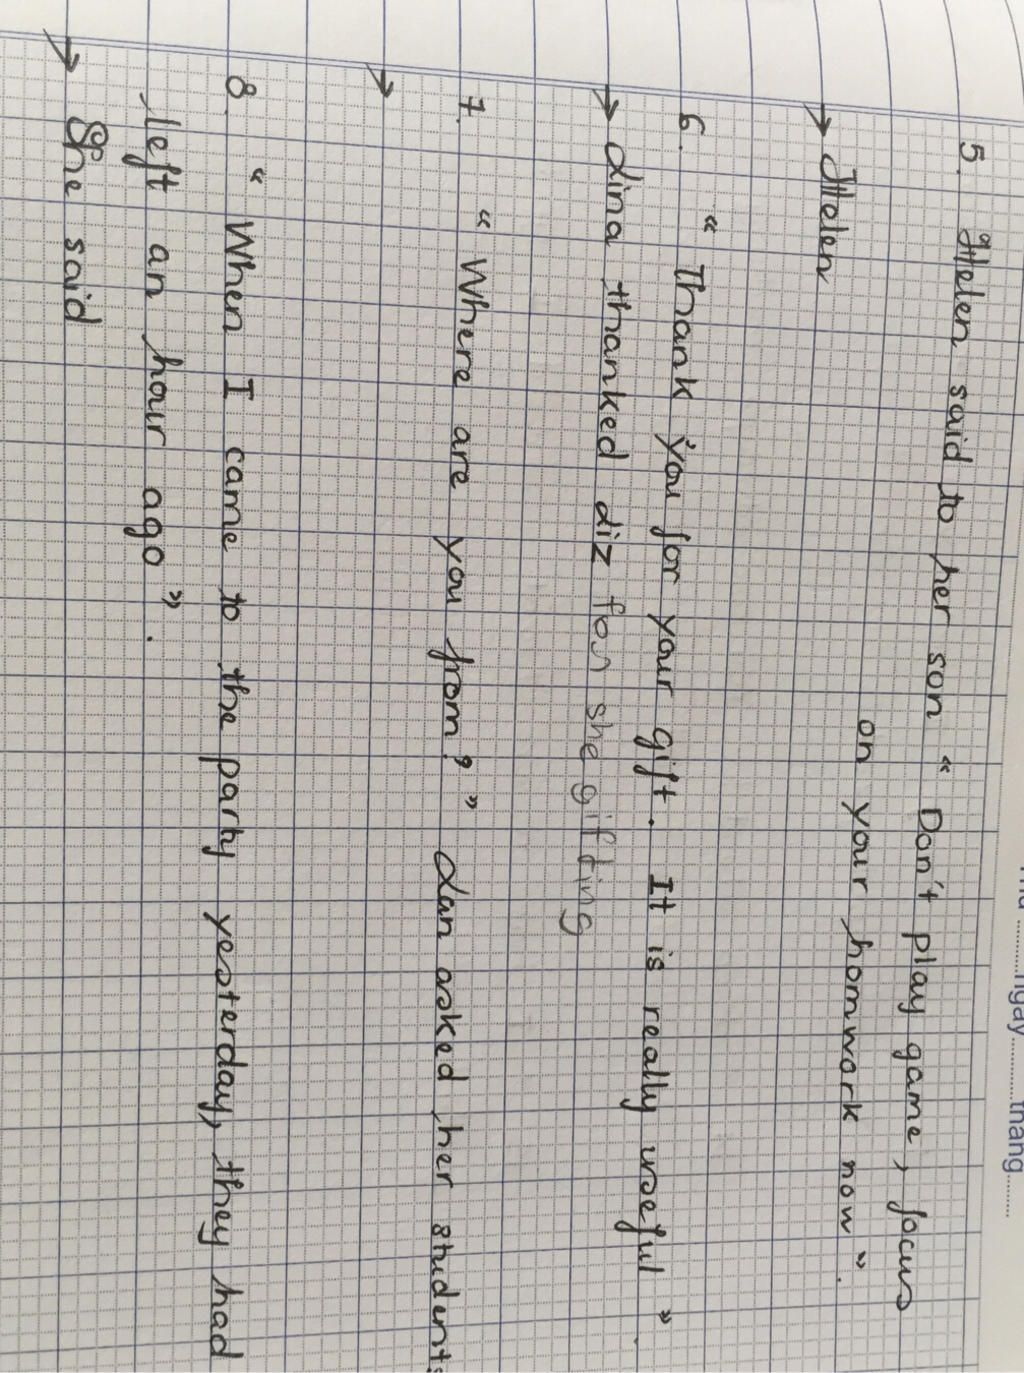 ngày.........tháng......
5. Helen said to her son " Don't play game, focus
on your homwork now".
→ Helen
6. " Thank you for your gift. It is really useful ".
→ Lina thanked diz for she gifting
7. " Where are you from? " Lan asked her students
→
8. " When I came to the party yesterday, they had
left an hour ago ".
→ She said